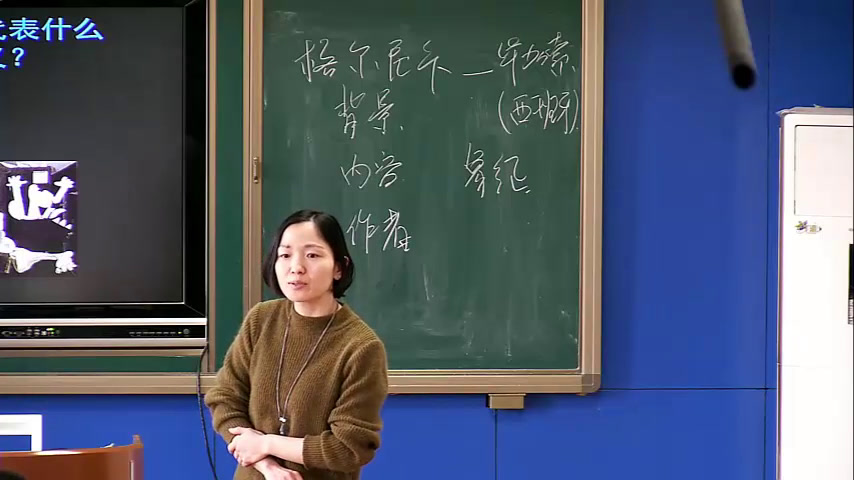 代表什么
义？
格尔尼卡—毕加索
背景 (西班牙)
内容 象征
作者